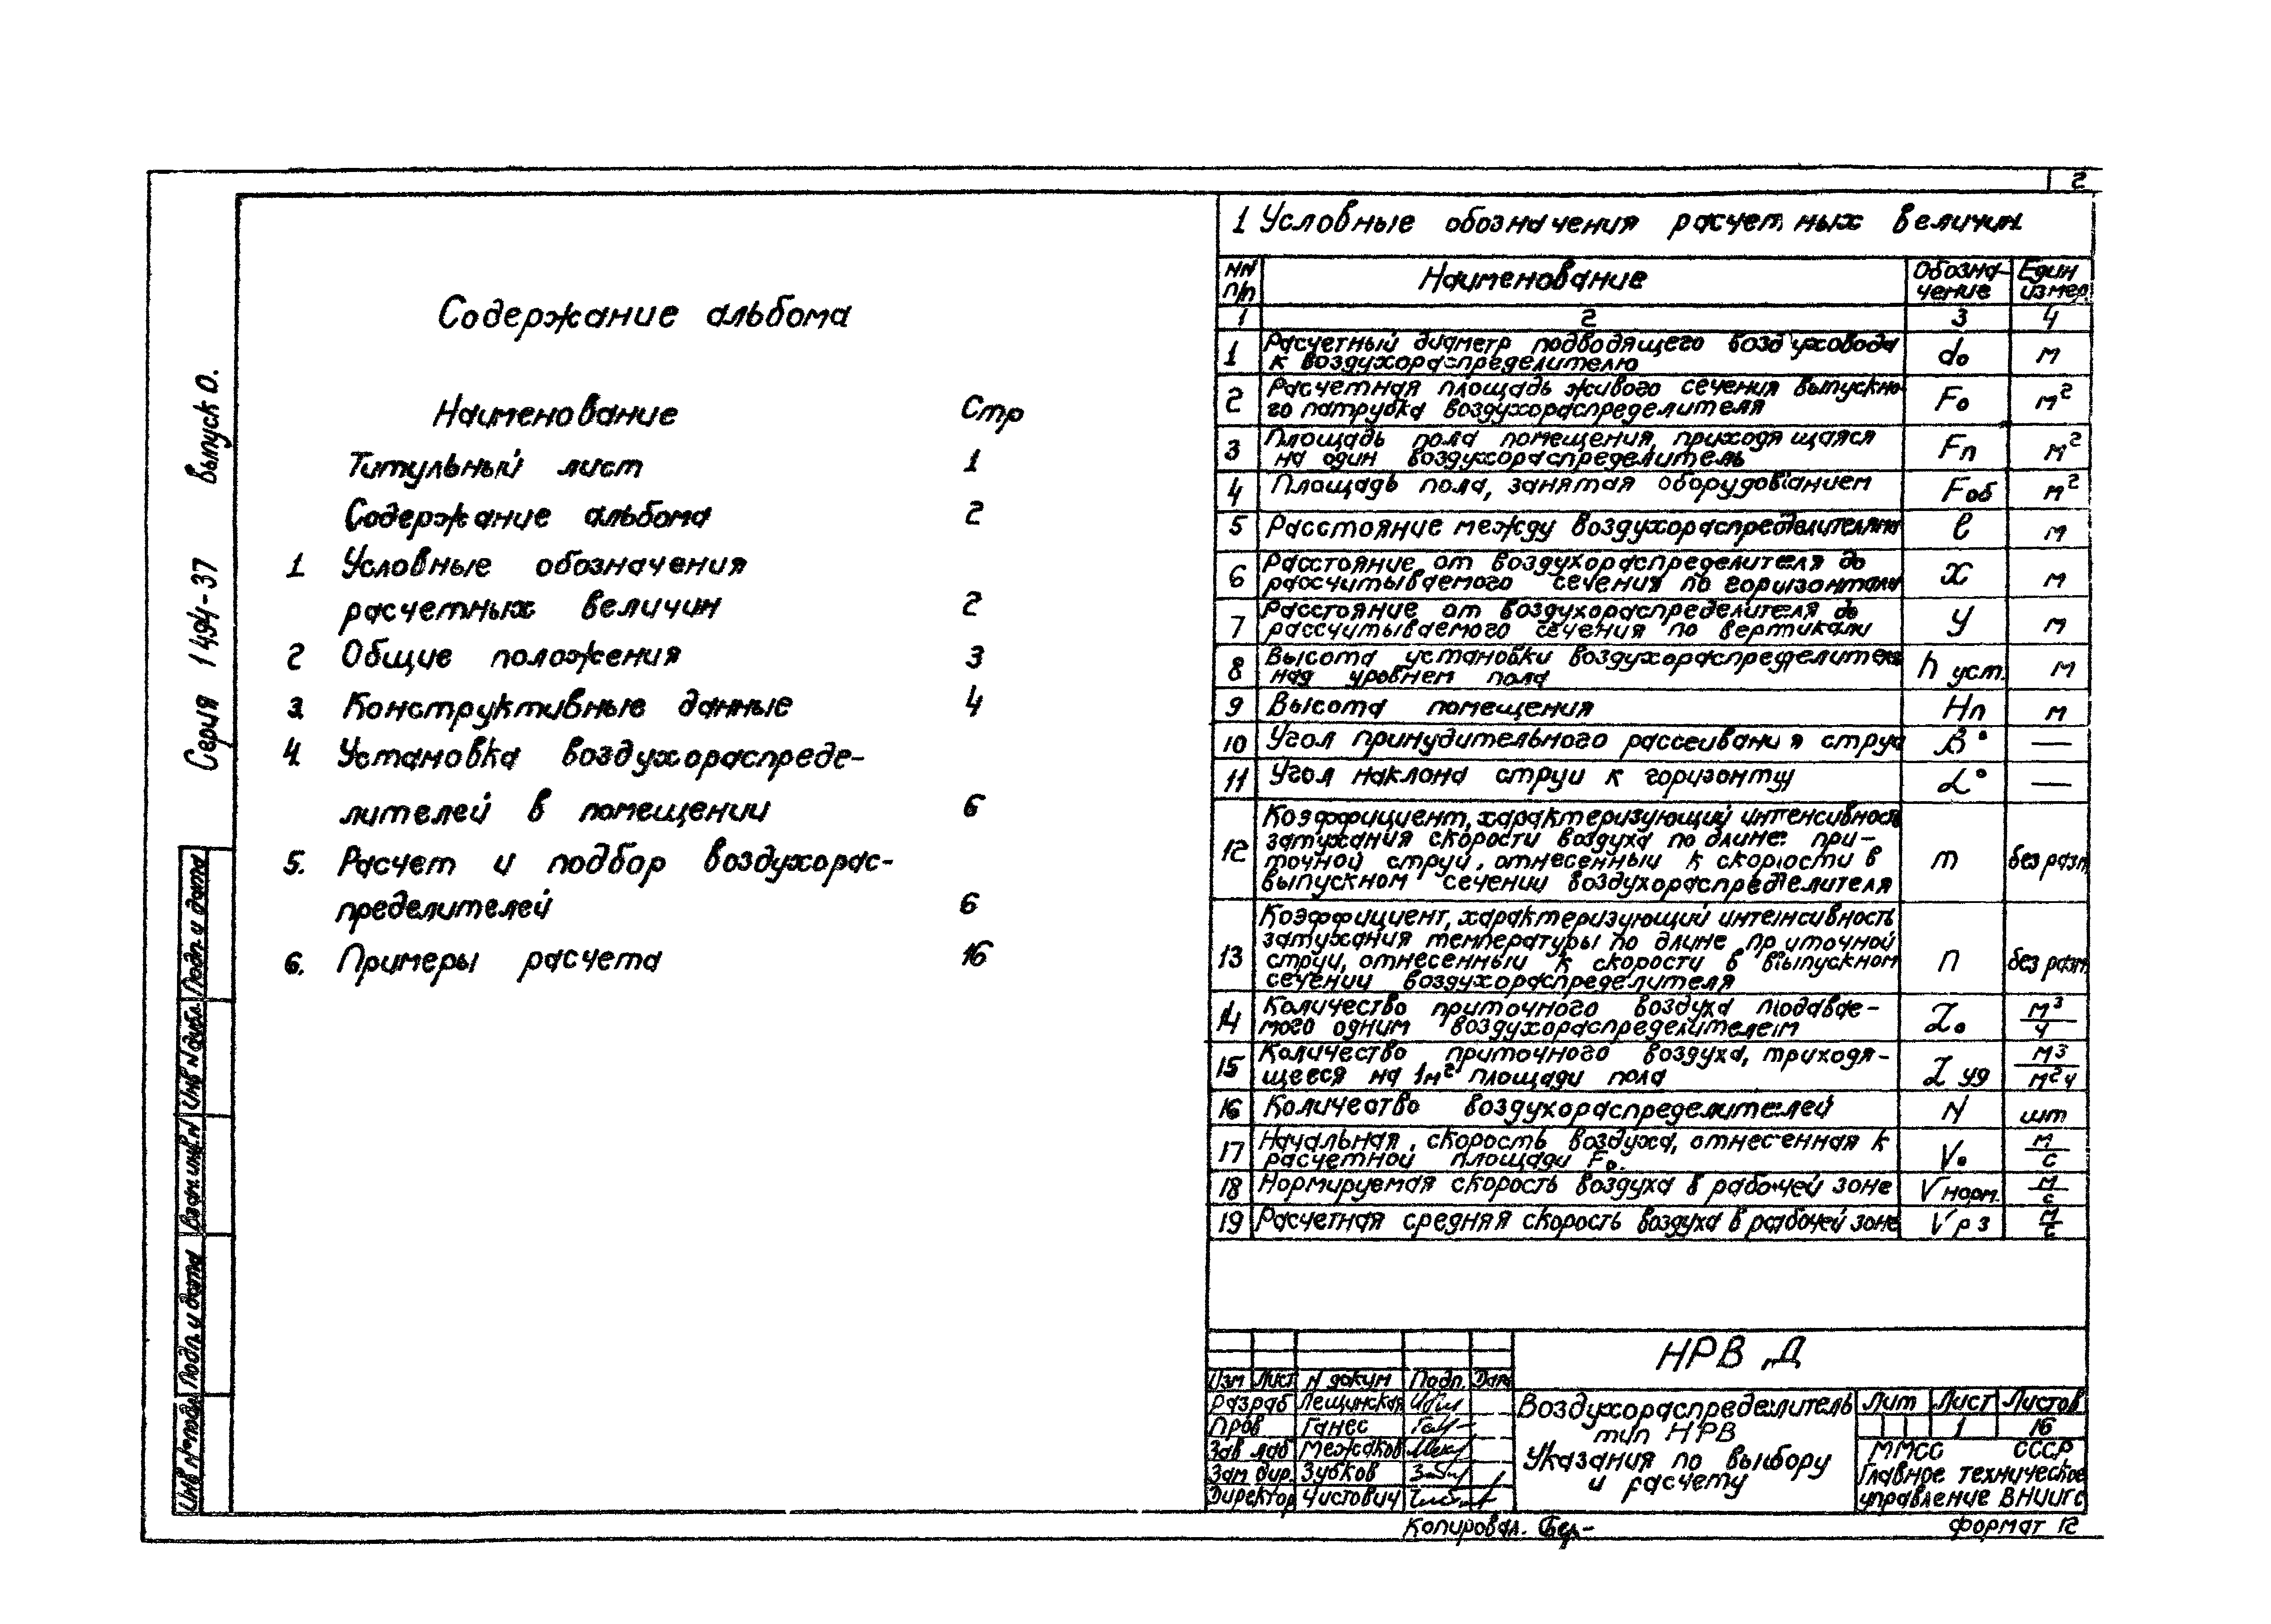 2
Серия 1494-37 выпуск 0.
Содержание альбома
Наименование Стр
Титульный лист 1
Содержание альбома 2
1 Условные обозначения
расчетных величин 2
2 Общие положения 3
3. Конструктивные данные 4
4. Установка воздухораспреде-
лителей в помещении 6
5. Расчет и подбор воздухорас-
пределителей 6
6. Примеры расчета 16
1 Условные обозначения расчетных величин
NN Наименование Обозна- Един
п/п чение измер.
1 2 3 4
1 Расчетный диаметр подводящего воздуховода
к воздухораспределителю d₀ м
2 Расчетная площадь живого сечения выпускно-
го патрубка воздухораспределителя F₀ м²
3 Площадь пола помещения, приходящаяся
на один воздухораспределитель Fп м²
4 Площадь пола, занятая оборудованием Fоб м²
5 Расстояние между воздухораспределителями ℓ м
6 Расстояние от воздухораспределителя до
рассчитываемого сечения по горизонтали x м
7 Расстояние от воздухораспределителя до
рассчитываемого сечения по вертикали y м
8 Высота установки воздухораспределителя
над уровнем пола h уст. м
9 Высота помещения Hп м
10 Угол принудительного рассеивания струи β° —
11 Угол наклона струи к горизонту α° —
12 Коэффициент, характеризующий интенсивность
затухания скорости воздуха по длине при-
точной струи, отнесенный к скорости в
выпускном сечении воздухораспределителя m без разм
13 Коэффициент, характеризующий интенсивность
затухания температуры по длине приточной
струи, отнесенный к скорости в выпускном
сечении воздухораспределителя n без разм
14 Количество приточного воздуха подавае-
мого одним воздухораспределителем L₀ м³/ч
15 Количество приточного воздуха, приходя-
щееся на 1м² площади пола L уд м³/м²ч
16 Количество воздухораспределителей N шт
17 Начальная скорость воздуха, отнесенная к
расчетной площади F₀. V₀ м/с
18 Нормируемая скорость воздуха в рабочей зоне V норм. м/с
19 Расчетная средняя скорость воздуха в рабочей зоне V р з м/с
НРВ Д
Изм Лист N докум Подп. Дата
Разраб Лещинская
Пров Ганес
Зав лаб Межаков
Зам дир. Зубков
Директор Чистович
Воздухораспределитель
тип НРВ
Указания по выбору
и расчету
Лит Лист Листов
1 16
ММСС СССР
Главное техническое
управление ВНИИГС
Копировал. Формат 12
Подп. и дата
Инв N дубл.
Взам. инв. N
Подп. и дата
Инв N подл.